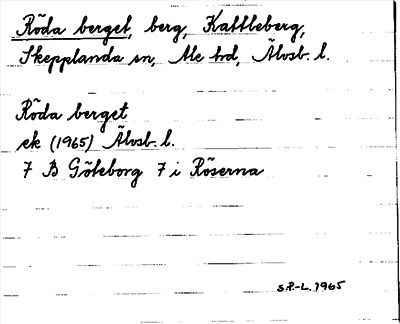 Röda berget, berg, Kattleberg,
Skepplanda sn, Ale hd, Älvsb. l.
Röda berget
ek (1965) Älvsb. l.
7 B Göteborg 7 i Röserna
S.P.-L. 1965